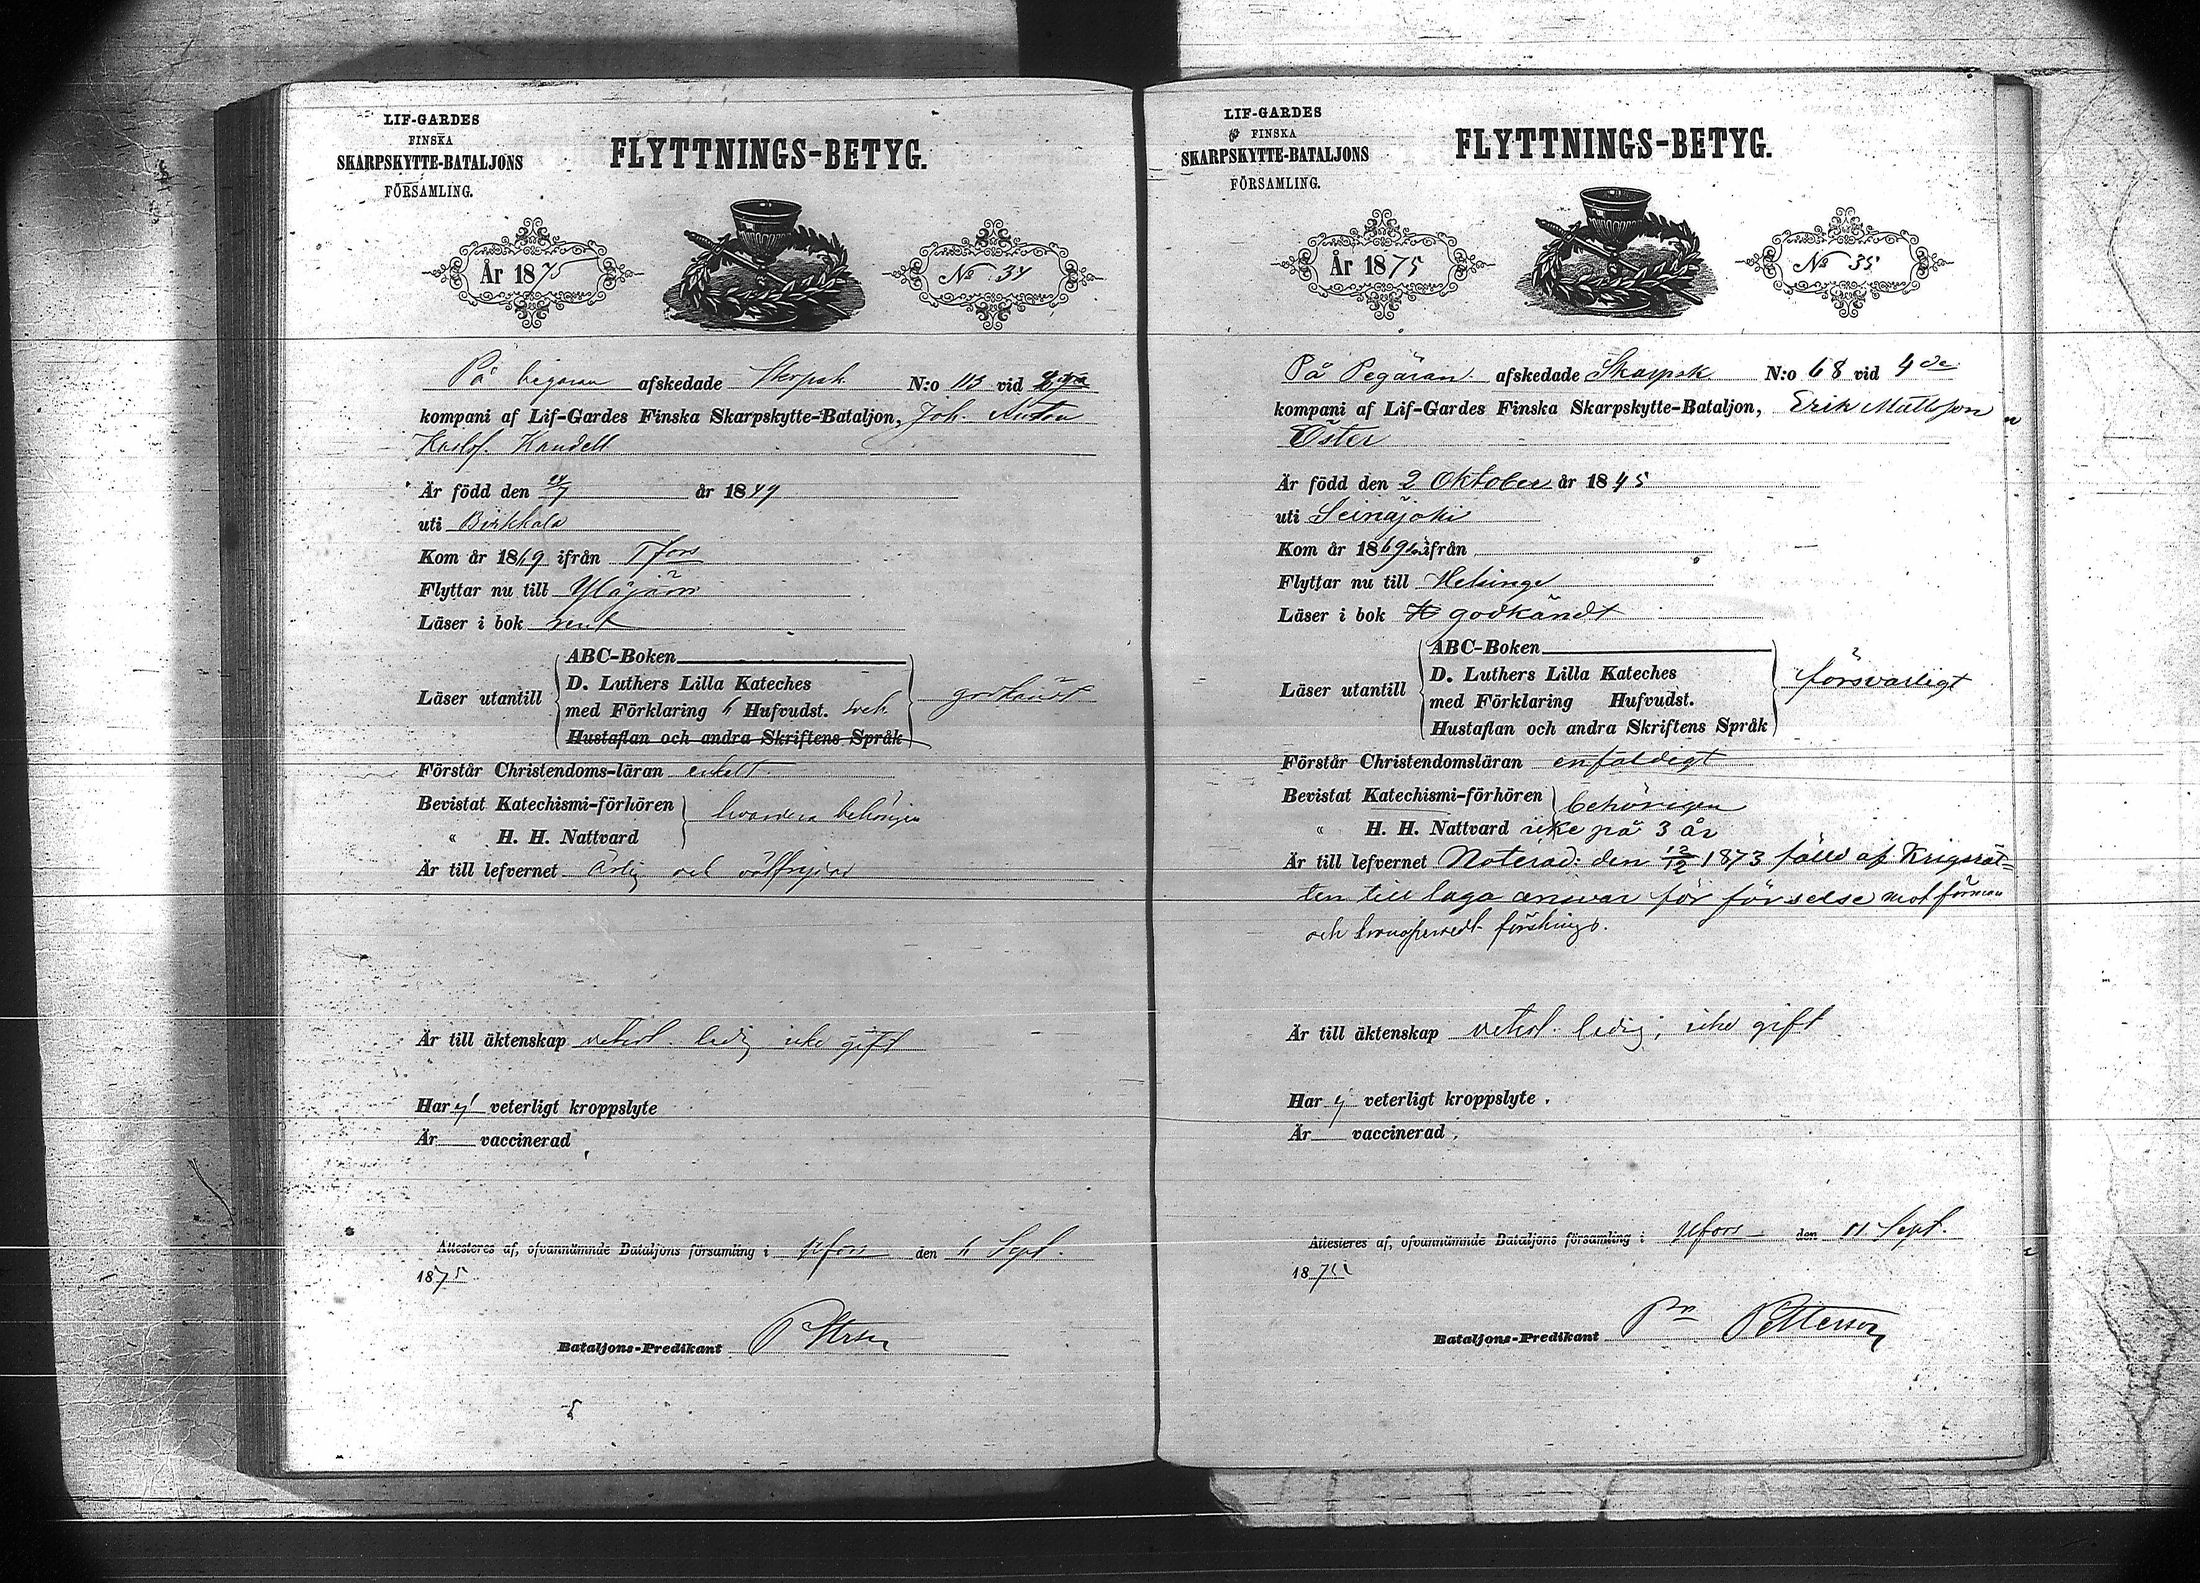 LIF-GARDES
FINSKA
SKARPSKYTTE-BATALJONS
FÖRSAMLING.
FLYTTNINGS-BETYG.
År 1875
No 34
På begäran afskedade Skarpsk. N:o 113 vid
kompani af Lif-Gardes Finska Skarpskytte-Bataljon, Joh. Anton
Karlof. Kandell
Är född den år 1849
uti Birkkala
Kom år 1869 ifrån Tfors
Flyttar nu till Ylöjärvi
Läser i bok rent
Läser utantill
ABC-Boken
D. Luthers Lilla Kateches
med Förklaring 6 Hufvudst.
Hustaflan och andra Skriftens Språk
godkändt
Förstår Christendoms-läran enkelt
Bevistat Katechismi-förhören
" H. H. Nattvard
hvardera behörigen
Är till lefvernet ärlig och välfrejdad
Är till äktenskap veterl. ledig icke gift
Har ej veterligt kroppslyte
Är vaccinerad
Attesteras af, ofvannämnde Bataljons församling i Hfors den 11 Sept.
1875
Bataljons-Predikant
LIF-GARDES
FINSKA
SKARPSKYTTE-BATALJONS
FÖRSAMLING.
FLYTTNINGS-BETYG.
År 1875
No 35
På Begäran afskedade Skarpsk. N:o 68 vid 4de
kompani af Lif-Gardes Finska Skarpskytte-Bataljon, Erik Mattsson
Öster
Är född den 2 Oktober år 1845
uti Seinäjoki
Kom år 1869 ifrån
Flyttar nu till Helsinge
Läser i bok godkändt
Läser utantill
ABC-Boken
D. Luthers Lilla Kateches
med Förklaring Hufvudst.
Hustaflan och andra Skriftens Språk
försvarligt
Förstår Christendomsläran enfaldigt
Bevistat Katechismi-förhören behörigen
" H. H. Nattvard icke på 3 år
Är till lefvernet Noterad: den 12/12 1873 fälld af Krigsrät-
ten till laga ansvar för förseelse mot förman
och
Är till äktenskap veterl. ledig, icke gift
Har ej veterligt kroppslyte.
Är vaccinerad.
Attesteras af, ofvannämnde Bataljons församling i Hfors den 11 Sept.
1875
Bataljons-Predikant Petterson